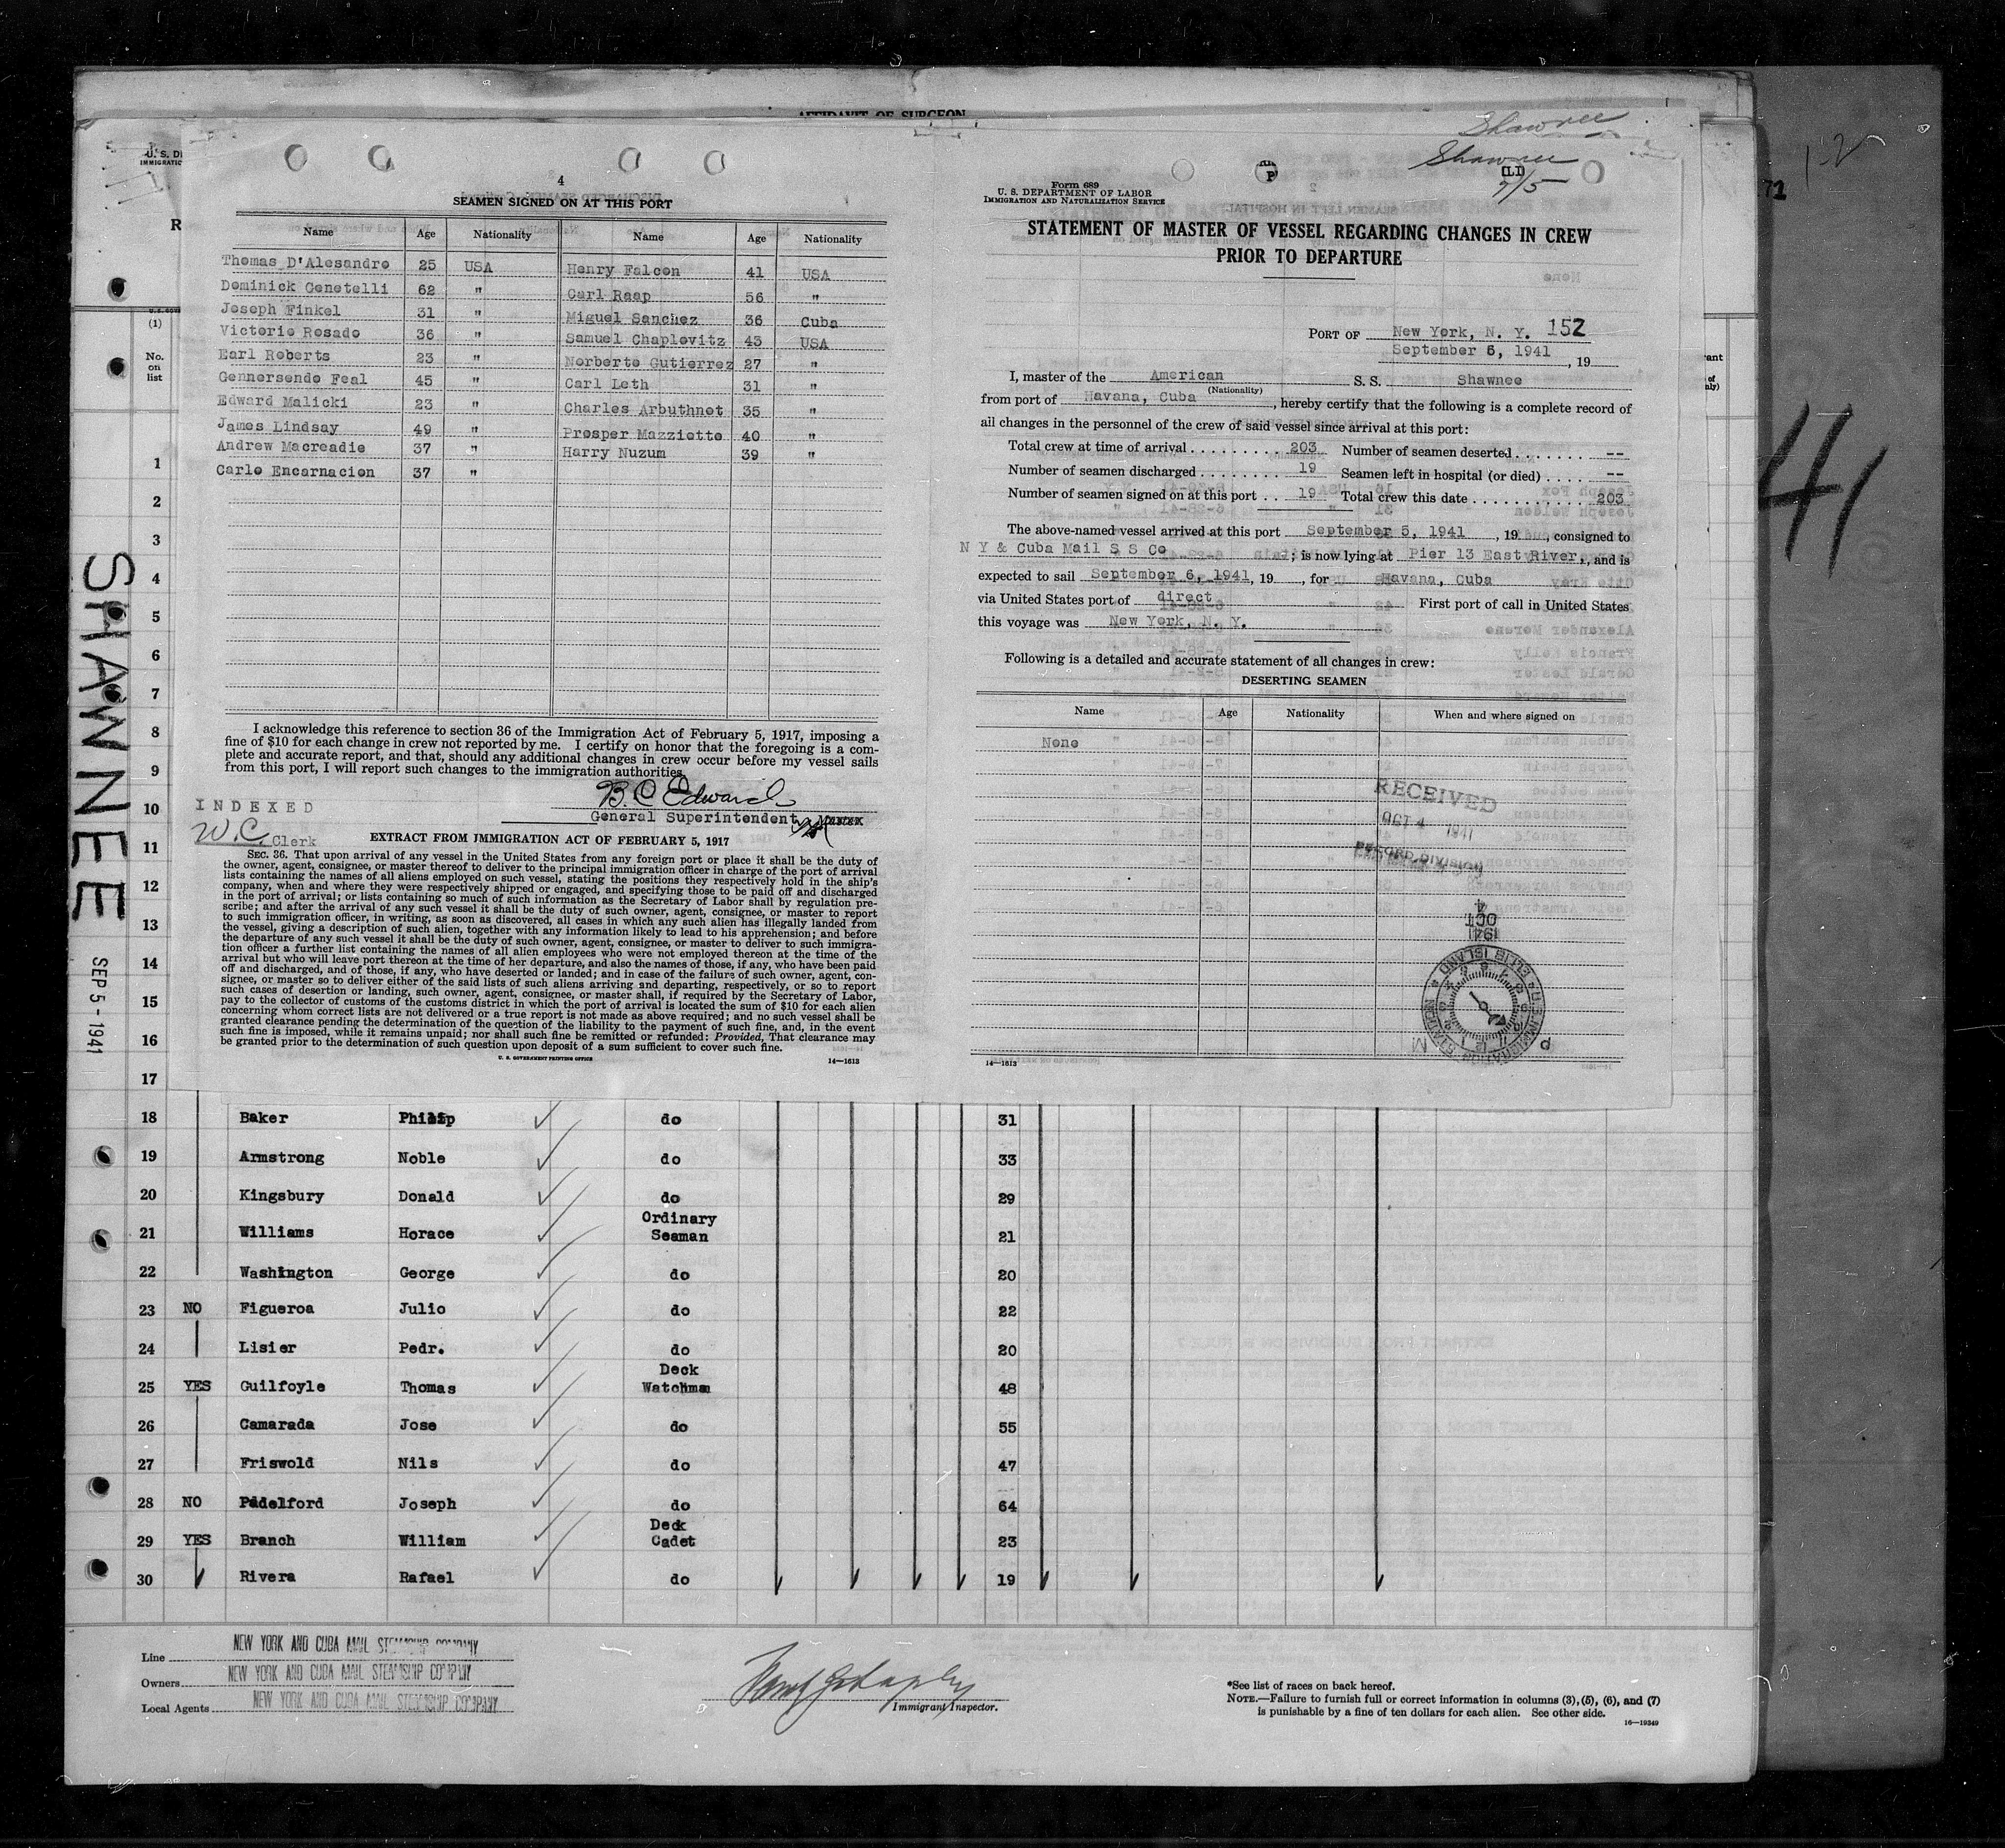 AFFIDAVIT OF SURGEON
Shawnee
Shawnee
(LI)
9/5
1-2
71
41
U. S. D
IMMIGRATIO
R
(1)
No.
on
list
4
SEAMEN SIGNED ON AT THIS PORT
Name Age Nationality Name Age Nationality
Thomas D'Alesandro 25 USA Henry Falcon 41 USA
Dominick Genetelli 62 " Carl Raap 56 "
Joseph Finkel 31 " Miguel Sanchez 36 Cuba
Victorio Rosado 36 " Samuel Chaplovitz 43 USA
Earl Roberts 23 " Norberto Gutierrez 27 "
Gennersendo Feal 45 " Carl Leth 31 "
Edward Malicki 23 " Charles Arbuthnot 35 "
James Lindsay 49 " Prosper Mazziotto 40 "
Andrew Macreadie 37 " Harry Nuzum 39 "
Carlo Encarnacion 37 "
I acknowledge this reference to section 36 of the Immigration Act of February 5, 1917, imposing a
fine of $10 for each change in crew not reported by me. I certify on honor that the foregoing is a com-
plete and accurate report, and that, should any additional changes in crew occur before my vessel sails
from this port, I will report such changes to the immigration authorities.
B. C Edwards
General Superintendent
INDEXED
W. C. Clerk
EXTRACT FROM IMMIGRATION ACT OF FEBRUARY 5, 1917
SEC. 36. That upon arrival of any vessel in the United States from any foreign port or place it shall be the duty of
the owner, agent, consignee, or master thereof to deliver to the principal immigration officer in charge of the port of arrival
lists containing the names of all aliens employed on such vessel, stating the positions they respectively hold in the ship's
company, when and where they were respectively shipped or engaged, and specifying those to be paid off and discharged
in the port of arrival; or lists containing so much of such information as the Secretary of Labor shall by regulation pre-
scribe; and after the arrival of any such vessel it shall be the duty of such owner, agent, consignee, or master to report
to such immigration officer, in writing, as soon as discovered, all cases in which any such alien has illegally landed from
the vessel, giving a description of such alien, together with any information likely to lead to his apprehension; and before
the departure of any such vessel it shall be the duty of such owner, agent, consignee, or master to deliver to such immigra-
tion officer a further list containing the names of all alien employees who were not employed thereon at the time of the
arrival but who will leave port thereon at the time of her departure, and also the names of those, if any, who have been paid
off and discharged, and of those, if any, who have deserted or landed; and in case of the failure of such owner, agent, con-
signee, or master so to deliver either of the said lists of such aliens arriving and departing, respectively, or so to report
such cases of desertion or landing, such owner, agent, consignee, or master shall, if required by the Secretary of Labor,
pay to the collector of customs of the customs district in which the port of arrival is located the sum of $10 for each alien
concerning whom correct lists are not delivered or a true report is not made as above required; and no such vessel shall be
granted clearance pending the determination of the question of the liability to the payment of such fine, and, in the event
such fine is imposed, while it remains unpaid; nor shall such fine be remitted or refunded: Provided, That clearance may
be granted prior to the determination of such question upon deposit of a sum sufficient to cover such fine.
U. S. GOVERNMENT PRINTING OFFICE 14—1613
Form 689
U. S. DEPARTMENT OF LABOR
IMMIGRATION AND NATURALIZATION SERVICE
P
STATEMENT OF MASTER OF VESSEL REGARDING CHANGES IN CREW
PRIOR TO DEPARTURE
PORT OF New York, N. Y. 152
September 6, 1941, 19
I, master of the American S. S. Shawnee
(Nationality)
from port of Havana, Cuba, hereby certify that the following is a complete record of
all changes in the personnel of the crew of said vessel since arrival at this port:
Total crew at time of arrival 203 Number of seamen deserted --
Number of seamen discharged 19 Seamen left in hospital (or died) --
Number of seamen signed on at this port 19 Total crew this date 203
The above-named vessel arrived at this port September 5, 1941, 19, consigned to
N Y & Cuba Mail S S Co; is now lying at Pier 13 East River, and is
expected to sail September 6, 1941, 19, for Havana, Cuba
via United States port of direct First port of call in United States
this voyage was New York, N. Y.
Following is a detailed and accurate statement of all changes in crew:
DESERTING SEAMEN
Name Age Nationality When and where signed on
None
RECEIVED
OCT 4 1941
RECORD DIVISION
OCT 4
1941
U.S. IMMIGRATION STATION
ELLIS ISLAND
P M
14—1613
SHAWNEE
SEP 5 - 1941
1
2
3
4
5
6
7
8
9
10
11
12
13
14
15
16
17
18 Baker Philip do 31
19 Armstrong Noble do 33
20 Kingsbury Donald do 29
21 Williams Horace Ordinary Seaman 21
22 Washington George do 20
23 NO Figueroa Julio do 22
24 Lisier Pedr. do 20
25 YES Guilfoyle Thomas Deck Watchman 48
26 Camarada Jose do 55
27 Friswold Nils do 47
28 NO Padelford Joseph do 64
29 YES Branch William Deck Cadet 23
30 Rivera Rafael do 19
Line NEW YORK AND CUBA MAIL STEAMSHIP COMPANY
Owners NEW YORK AND CUBA MAIL STEAMSHIP COMPANY
Local Agents NEW YORK AND CUBA MAIL STEAMSHIP COMPANY
Immigrant Inspector.
*See list of races on back hereof.
NOTE.—Failure to furnish full or correct information in columns (3), (5), (6), and (7)
is punishable by a fine of ten dollars for each alien. See other side.
16—19349